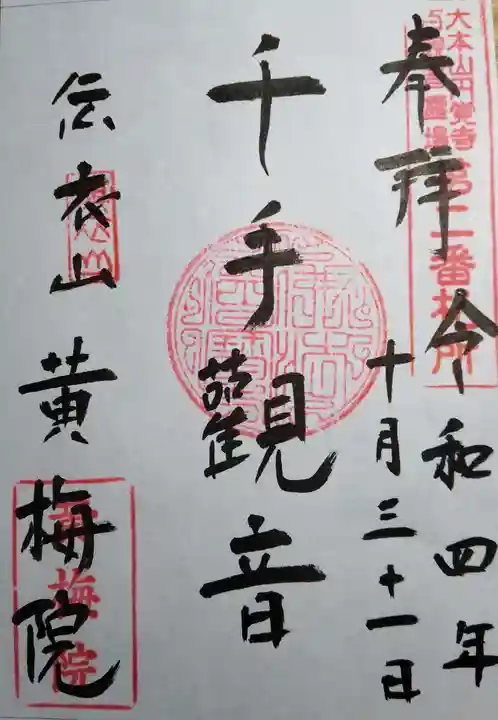 大本山円覚寺
百観音霊場第二番札所
奉拝
令和四年
十月三十一日
千手觀音
伝衣山
黄梅院
黄梅院